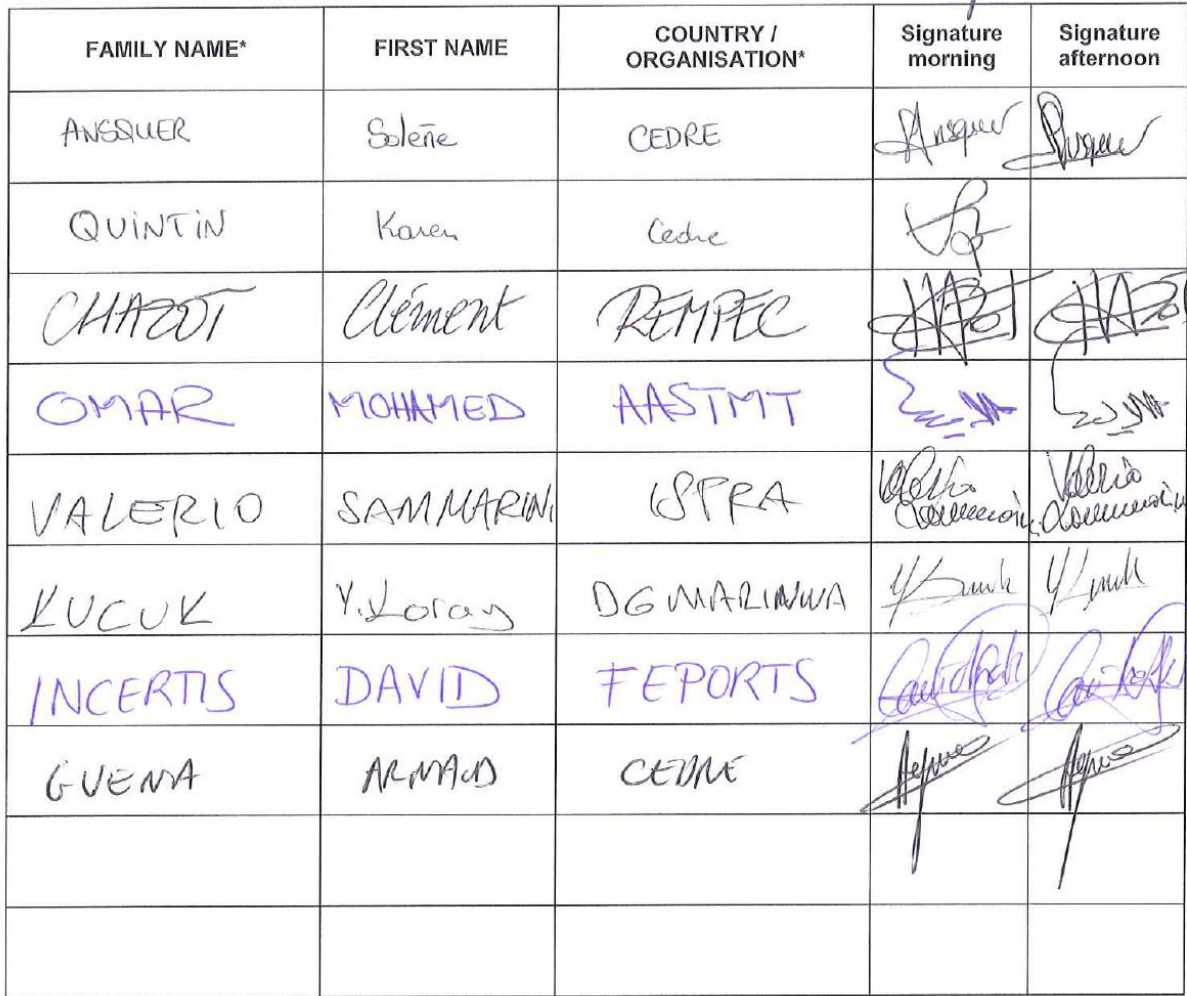 FAMILY NAME* FIRST NAME COUNTRY / ORGANISATION* Signature morning Signature afternoon
ANSQUER Solène CEDRE Ansquer Ansquer
QUINTIN Karen Cedre
CHAZOT Clément REMPEC CHAZOT CHAZOT
OMAR MOHAMED AASTMT
VALERIO SAMMARINI ISPRA Valerio Sammarini Valerio Sammarini
KUCUK Y. Koray DG MARINWA
INCERTIS DAVID FEPORTS
GUENA ARMAUD CEDRE